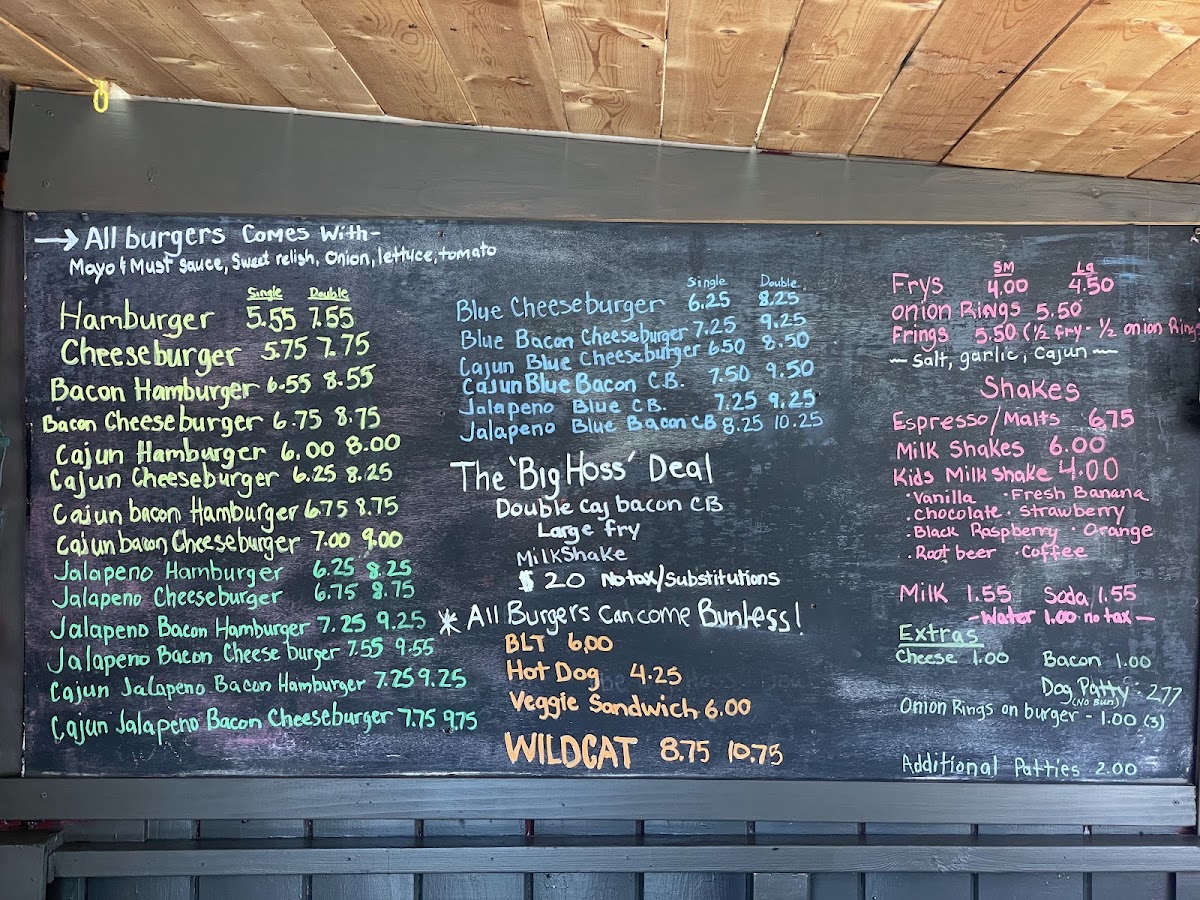 → All burgers Comes With-
Mayo & Must Sauce, Sweet relish, Onion, lettuce, tomato
Single Double
Hamburger 5.55 7.55
Cheeseburger 5.75 7.75
Bacon Hamburger 6.55 8.55
Bacon Cheeseburger 6.75 8.75
Cajun Hamburger 6.00 8.00
Cajun Cheeseburger 6.25 8.25
Cajun bacon Hamburger 6.75 8.75
Cajun bacon Cheeseburger 7.00 9.00
Jalapeno Hamburger 6.25 8.25
Jalapeno Cheeseburger 6.75 8.75
Jalapeno Bacon Hamburger 7.25 9.25
Jalapeno Bacon Cheese burger 7.55 9.55
Cajun Jalapeno Bacon Hamburger 7.25 9.25
Cajun Jalapeno Bacon Cheeseburger 7.75 9.75
Single Double
Blue Cheeseburger 6.25 8.25
Blue Bacon Cheeseburger 7.25 9.25
Cajun Blue Cheeseburger 6.50 8.50
Cajun Blue Bacon C.B. 7.50 9.50
Jalapeno Blue CB. 7.25 9.25
Jalapeno Blue Bacon CB 8.25 10.25
The 'Big Hoss' Deal
Double Caj bacon CB
Large fry
MilkShake
$20 No tax/Substitutions
* All Burgers Can come Bunless!
BLT 6.00
Hot Dog 4.25
Veggie Sandwich 6.00
WILDCAT 8.75 10.75
SM Lg
Frys 4.00 4.50
onion Rings 5.50
Frings 5.50 (1/2 fry - 1/2 onion Rings
- Salt, garlic, Cajun -
Shakes
Espresso/Malts 6.75
Milk Shakes 6.00
Kids Milk Shake 4.00
· Vanilla · Fresh Banana
· Chocolate · Strawberry
· Black Raspberry · Orange
· Root beer · Coffee
Milk 1.55 Soda 1.55
- Water 1.00 no tax -
Extras
Cheese 1.00 Bacon 1.00
Dog Patty · 2.77
(No Bun)
Onion Rings on burger - 1.00 (3)
Additional Patties 2.00